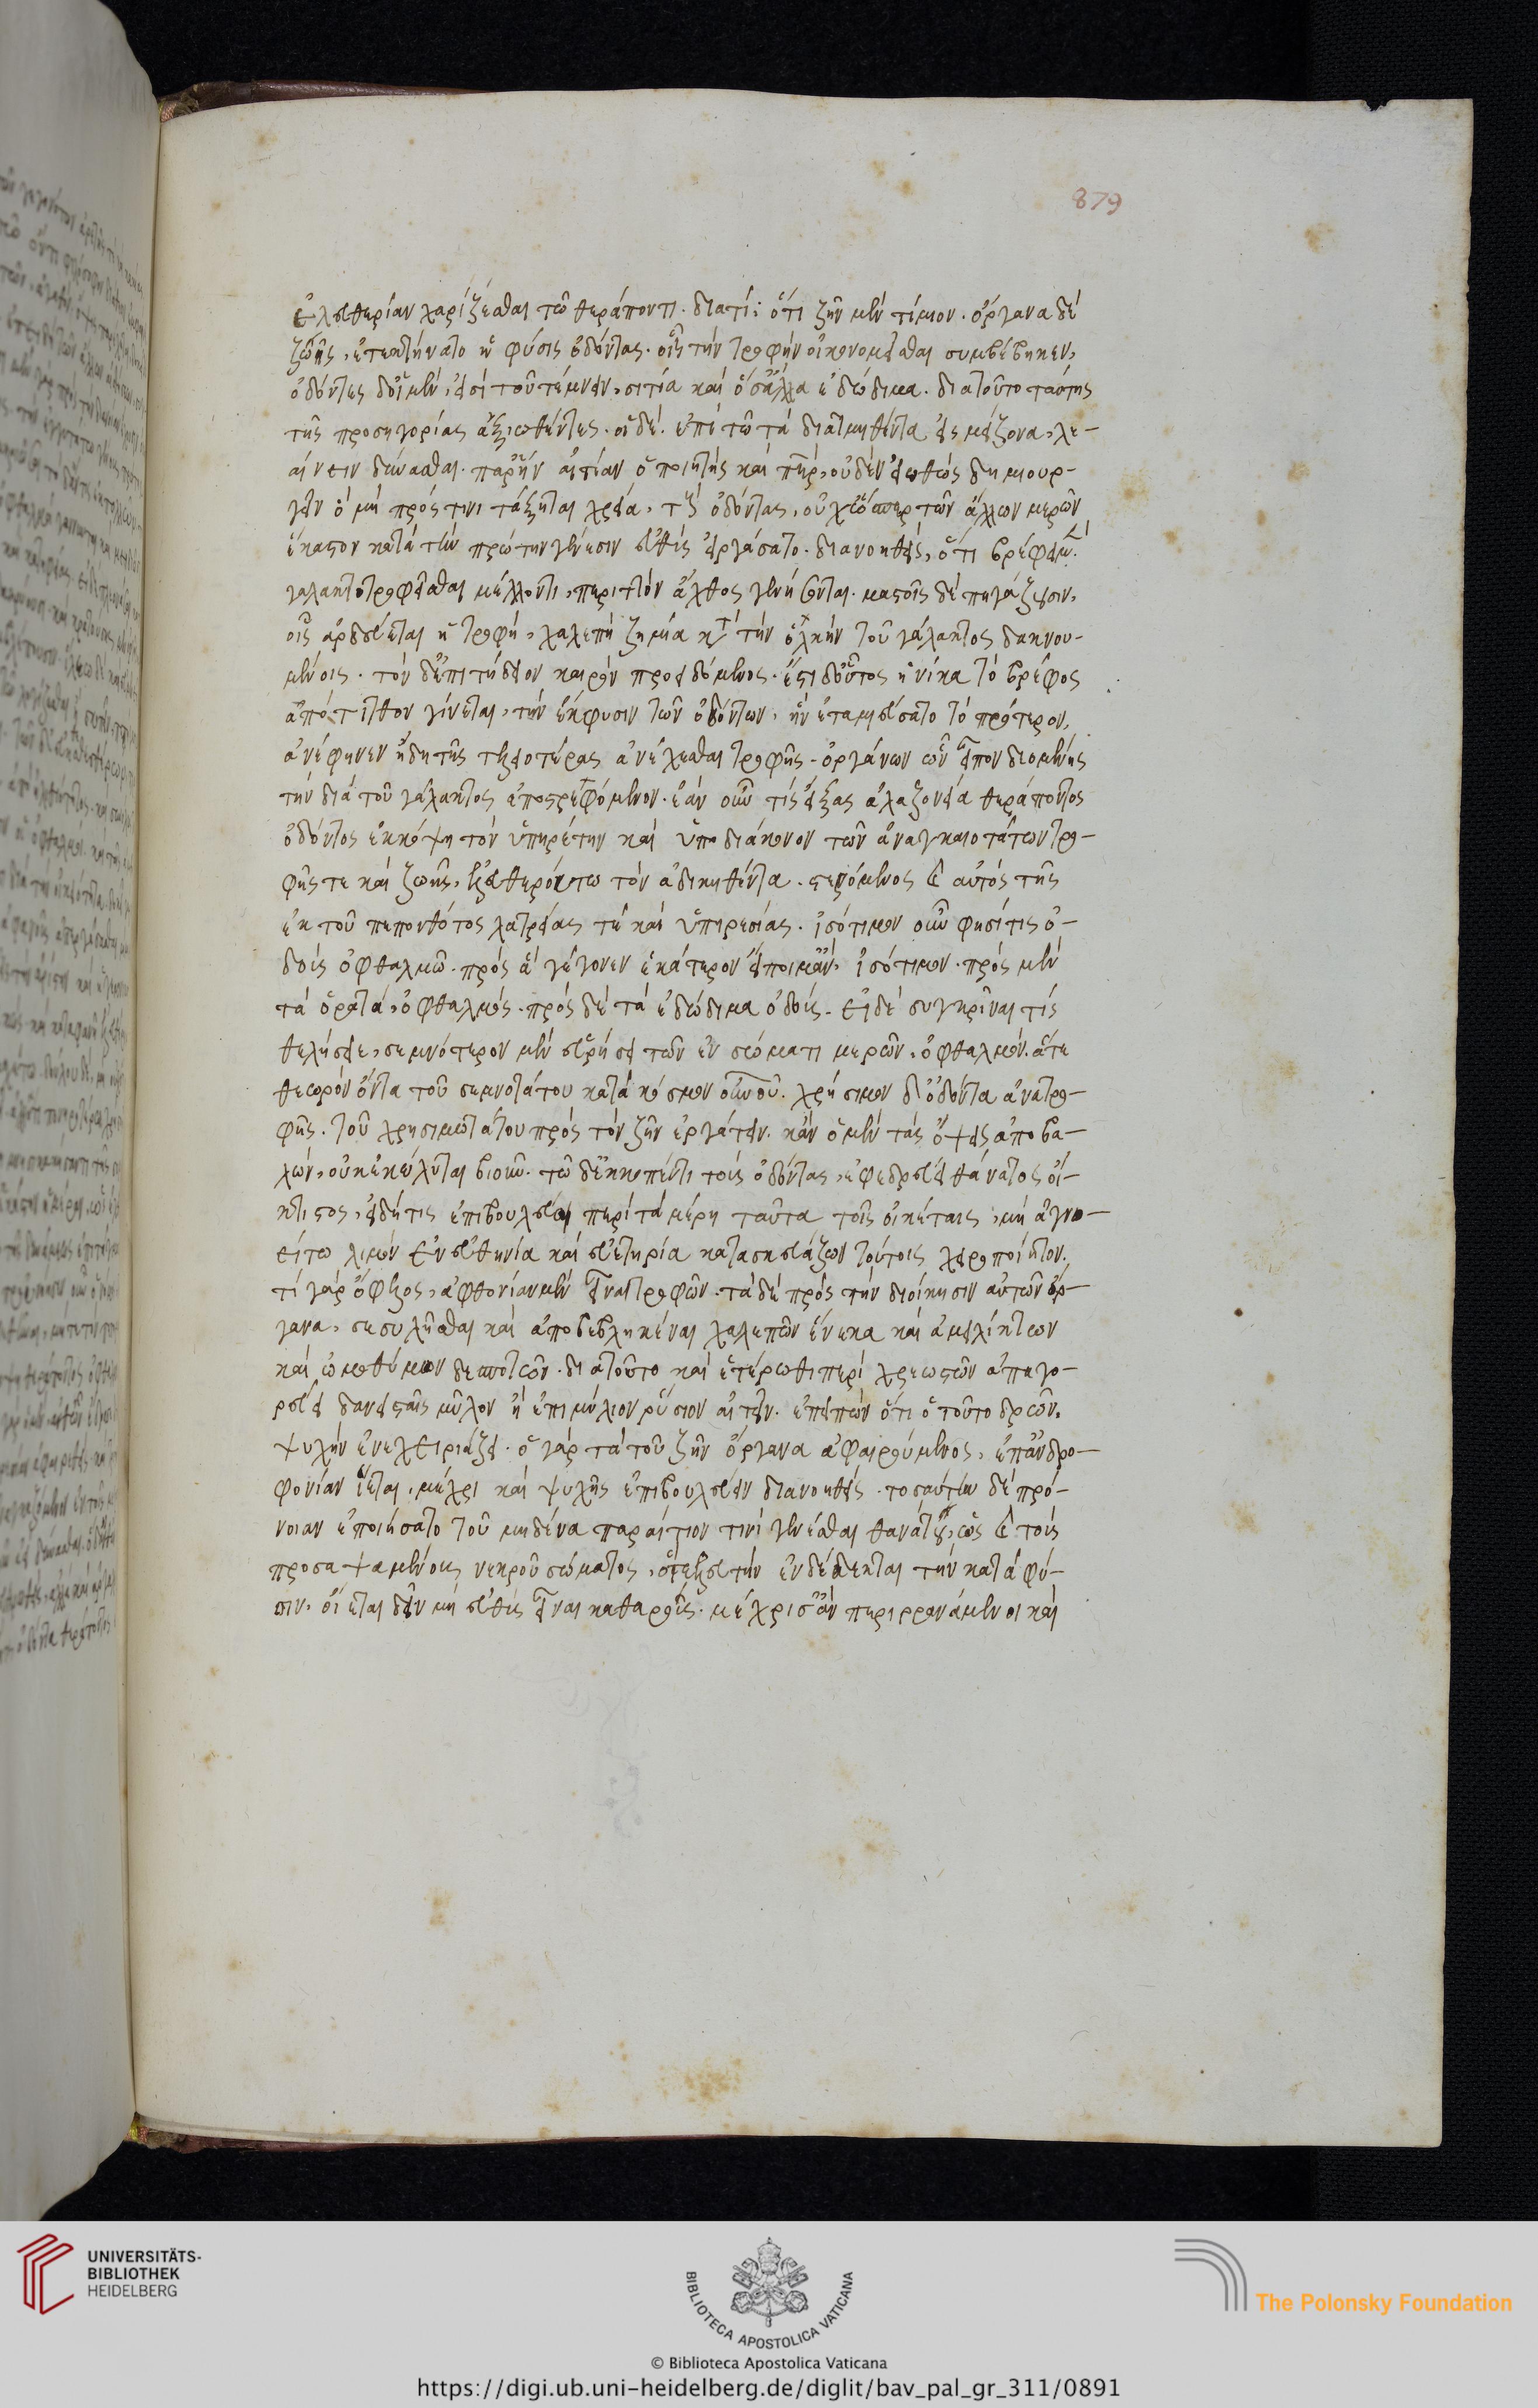 879
ἐλευθερίαν χαρίζεσθαι τῶ θεράποντι. διατί; ὅτι ζῆν μὲν τίμιον. ὄργανα δὲ
ζωῆς, ἐτεκτήνατο ἡ φύσις ὀδόντας. οἷς τὴν τροφὴν οἰκονομεῖσθαι συμβέβηκεν,
ὀδόντες δ' οἱ μὲν, εἰσὶ τοῦ τέμνειν, σιτία καὶ ὅσ' ἄλλα ἐδώδιμα. διατοῦτο ταύτης
τῆς προσηγορίας ἀξιωθέντες. οἱ δὲ. ἐπὶ τῶ τὰ διατμηθέντα εἰς μείζονα, λε-
αίνειν δύνασθαι. παρ' ἣν αἰτίαν ὁ ποιητὴς καὶ πηρ, οὐδὲν εἰωθὼς δημιουρ-
γεῖν ὃ μὴ πρός τινι τάξηται χρεία, τοὺς ὀδόντας, οὐχ ὥσπερ τῶν ἄλλων μερῶν
ἕκαστον κατὰ τὴν πρώτην γένεσιν εὐθὺς εἰργάσατο. διανοηθεὶς, ὅτι βρέφει μὲν
γαλακτοτροφεῖσθαι μέλλοντι, περιττὸν ἄχθος γενήσονται. μαστοῖς δὲ πηγάζουσιν,
οἷς ἀρδεύεται ἡ τροφὴ, χαλεπὴ ζημία κατὰ τὴν ὁλκὴν τοῦ γάλακτος δακνου-
μένοις. τὸν δ' ἐπιτήδειον καιρὸν προειδόμενος. ἔστι δ' οὗτος ἡνίκα τὸ βρέφος
ἀπότιτθον γίνεται, τὴν ἔκφυσιν τῶν ὀδόντων, ἣν ἐταμιεύσατο τὸ πρότερον,
ἀνέφηνεν ἤδη τῆς τελειοτέρας ἀνέχεσθαι τροφῆς. ὀργάνων ὧν εἶπον δεομένης
τὴν διὰ τοῦ γάλακτος ἀποστρεφόμενον. ἐὰν οὖν τὶς εἴξας ἀλαζονεία θεράποντος
ὀδόντος ἐκκόψη τὸν ὑπηρέτην καὶ ὑποδιάκονον τῶν ἀναγκαιοτάτων τρο-
φῆς τε καὶ ζωῆς, ἐλευθερούτω τὸν ἀδικηθέντα. στερόμενος καὶ αὐτὸς τῆς
ἐκ τοῦ πεπονθότος λατρείας τὲ καὶ ὑπηρεσίας. ἰσότιμον οὖν φησί τις ὀ-
δοὺς ὀφθαλμῶ. πρὸς ἃ γέγονεν ἑκάτερον εἴποιμ' ἂν, ἰσότιμον. πρὸς μὲν
τὰ ὁρατὰ, ὀφθαλμὸς. πρὸς δὲ τὰ ἐδώδιμα ὀδούς. εἰ δὲ συγκρῖναι τὶς
θελήσειε, σεμνότερον μὲν εὑρήσει τῶν ἐν σώματι μερῶν, ὀφθαλμὸν. ἅτε
θεωρὸν ὄντα τοῦ σεμνοτάτου κατὰ κόσμον οὐνοῦ. χρήσιμον δ' ὀδόντα ἅνατρο-
φῆς. τοῦ χρησιμωτάτου πρὸς τὸν ζῆν ἐργάτην. κἂν ὁ μὲν τὰς ὄψεις ἀποβα-
λὼν, οὐ κεκώλυται βιοῦν. τῶ δ' ἐκκοπέντι τοὺς ὀδόντας, ἐφεδρεύει θάνατος οἴ-
κτιστος, εἰ δή τις ἐπιβουλεύει περὶ τὰ μέρη ταῦτα τοῖς οἰκέταις, μὴ ἀγνο-
είτω λιμὸν ἐν εὐθηνία καὶ εὐετηρία κατασκευάζων τούτοις χειροποίητον.
τί γὰρ ὄφελος, ἀφθονίαν μὲν εἶναι τροφῶν. τὰ δὲ πρὸς τὴν διοίκησιν αὐτῶν ὄρ-
γανα, σεσυλῆσθαι καὶ ἀποβεβληκέναι χαλεπῶν ἕνεκα καὶ ἀμειλίκτων
καὶ ὠμοθύμων δεσποτῶν. διατοῦτο καὶ ἑτέρωθι περὶ χρεωστῶν ἀπαγο-
ρεύει δανεισταῖς μῦλον ἢ ἐπιμύλιον ῥύσιον αἰτεῖν. ἐπειπὼν ὅτι ὁ τοῦτο δρῶν,
ψυχὴν ἐνεχειριάζει. ὁ γὰρ τὰ τοῦ ζῆν ὄργανα ἀφαιρούμενος, ἐπ' ἀνδρο-
φονίαν ἵεται, μέχρι καὶ ψυχῆς ἐπιβουλεύειν διανοηθείς. τοσαύτην δὲ πρό-
νοιαν ἐποιήσατο τοῦ μηδένα παραίτιον τινὶ γενέσθαι θανάτου, ὡς καὶ τοὺς
προσαψαμένους νεκροῦ σώματος, τελευτὴν ἐνδέδεκται τὴν κατὰ φύ-
σιν, οἴεται δεῖν μὴ εὐθὺς εἶναι καθαροὺς. μέχρις ἂν περιρρανάμενοι καὶ
UNIVERSITÄTS-
BIBLIOTHEK
HEIDELBERG
BIBLIOTECA APOSTOLICA VATICANA
© Biblioteca Apostolica Vaticana
The Polonsky Foundation
https://digi.ub.uni-heidelberg.de/diglit/bav_pal_gr_311/0891